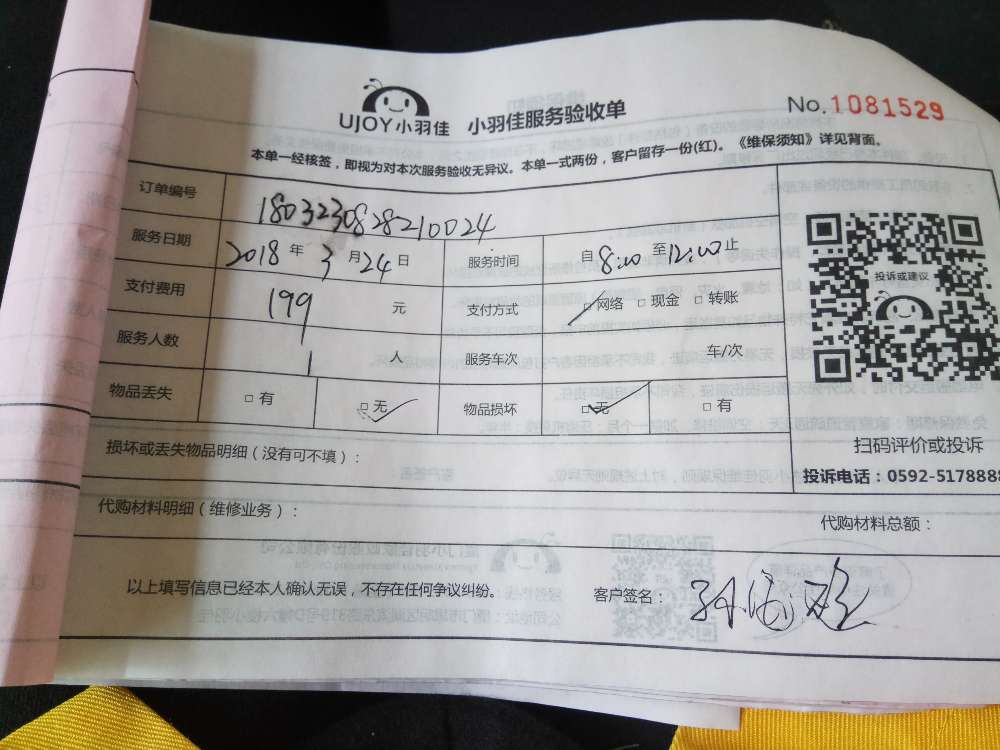 UJOY小羽佳 小羽佳服务验收单 No.1081529
本单一经核签，即视为对本次服务验收无异议。本单一式两份，客户留存一份(红)。《维保须知》详见背面。
订单编号 1803230828210024
服务日期 2018 年 3 月 24 日 服务时间 自 8:00 至 12:00 止
支付费用 199 元 支付方式 □网络 □现金 □转账
服务人数 1 人 服务车次 车/次
物品丢失 □有 □无 物品损坏 □无 □有
投诉或建议
扫码评价或投诉
投诉电话：0592-5178888
损坏或丢失物品明细（没有可不填）：
代购材料明细（维修业务）： 代购材料总额：
以上填写信息已经本人确认无误，不存在任何争议纠纷。 客户签名：